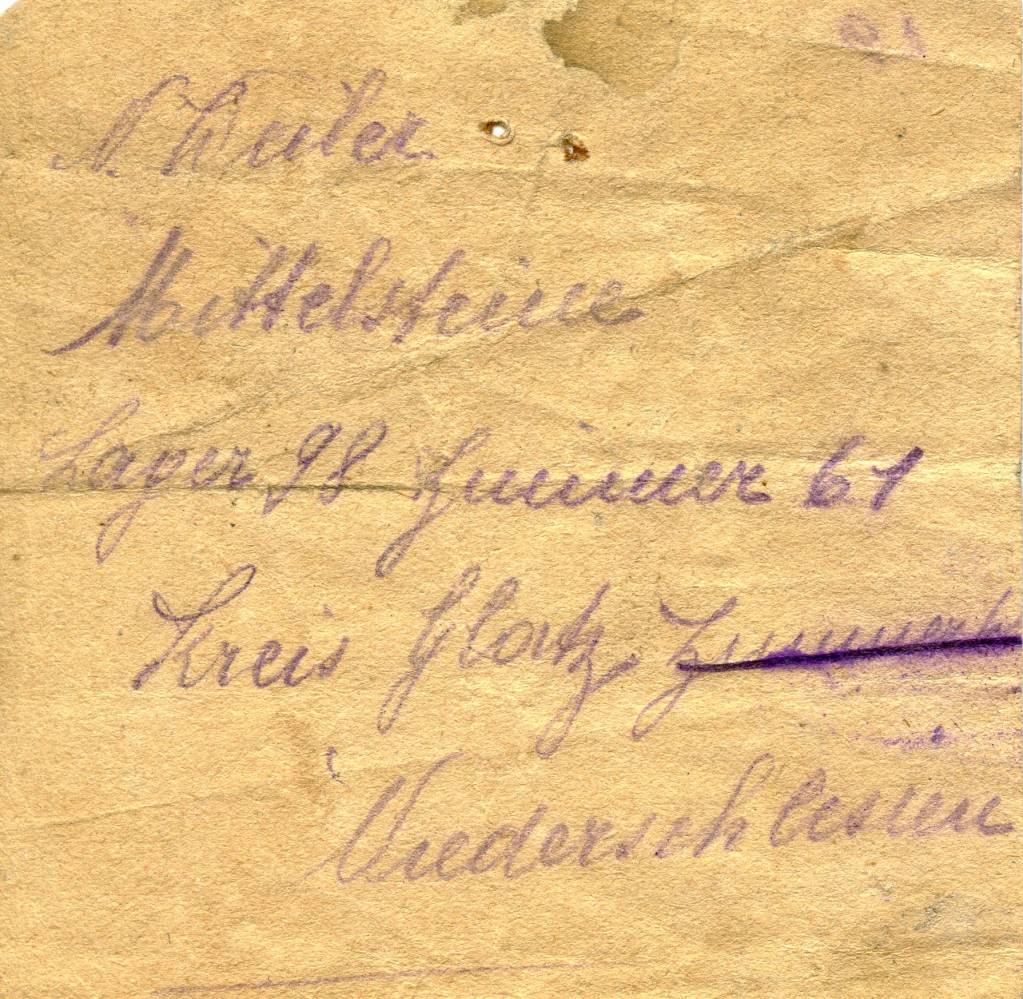 Mittelsteine
Lager 98 Zimmer 61
Kreis Glatz
Niederschlesien